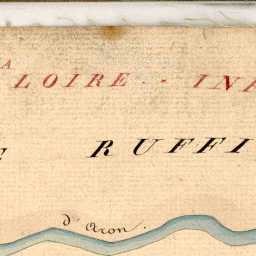 LA LOIRE - INF
E RUFFI
d'Aron.